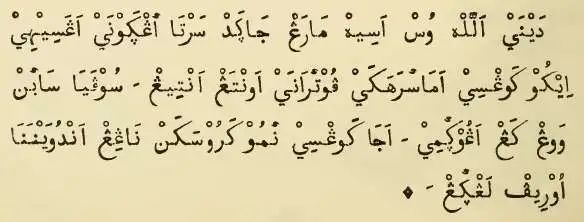 دَيْنَيْ اَللّٰهْ وُسْ اَسِيهْ مَارَڠْ جَاڮَدْ سَرْتَا اَڠْڮَوْنَيْ اَڠَسِيهِيْ
اِيْكُوْ كَوڠْسِيْ اَمَاسْرَهَكَيْ ڤُوْتْرَانَيْ اَوْنْتَڠْ اَنْتِيڠْ - سُوْڤَيَا سَابْنْ
وَوڠْ كَڠْ اَڠُوْڮٓمِيْ - اَجَا كَوڠْسِيْ نٓمُوْ كَرُوْسَكَنْ نَاڠِڠْ اَنْدُوَيْنَنَا
اُوْرِيڤْ لَڠْڮٓڠْ -